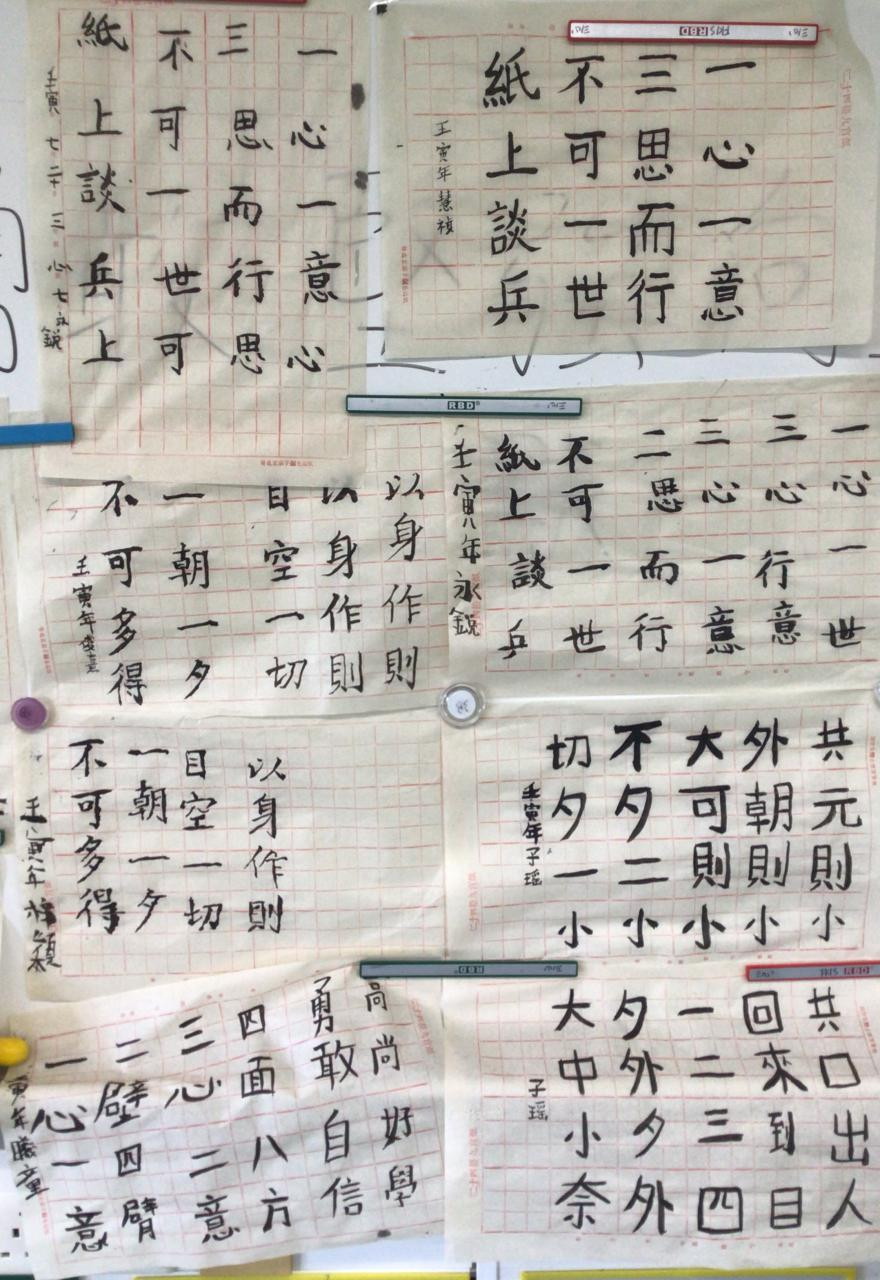 一心一意心
三思而行思
不可一世可
紙上談兵上
一心一意
三思而行
不可一世
紙上談兵
壬寅年慧禎
RBD
以身作則
以身作則
目空一切
一朝一夕
不可多得
一心一世
三心行意
三心一意
二思而行
不可一世
紙上談兵
壬寅八年永銳
以身作則
目空一切
一朝一夕
不可多得
共元則小
外朝則小
大可則小
不夕二小
切夕一小
壬寅年子瑶
尚尚好學
勇敢自信
四面八方
三心二意
二壁四臂
一心一意
共口出人
回來到目
一二三四
夕外夕外
大中小奈
子瑶